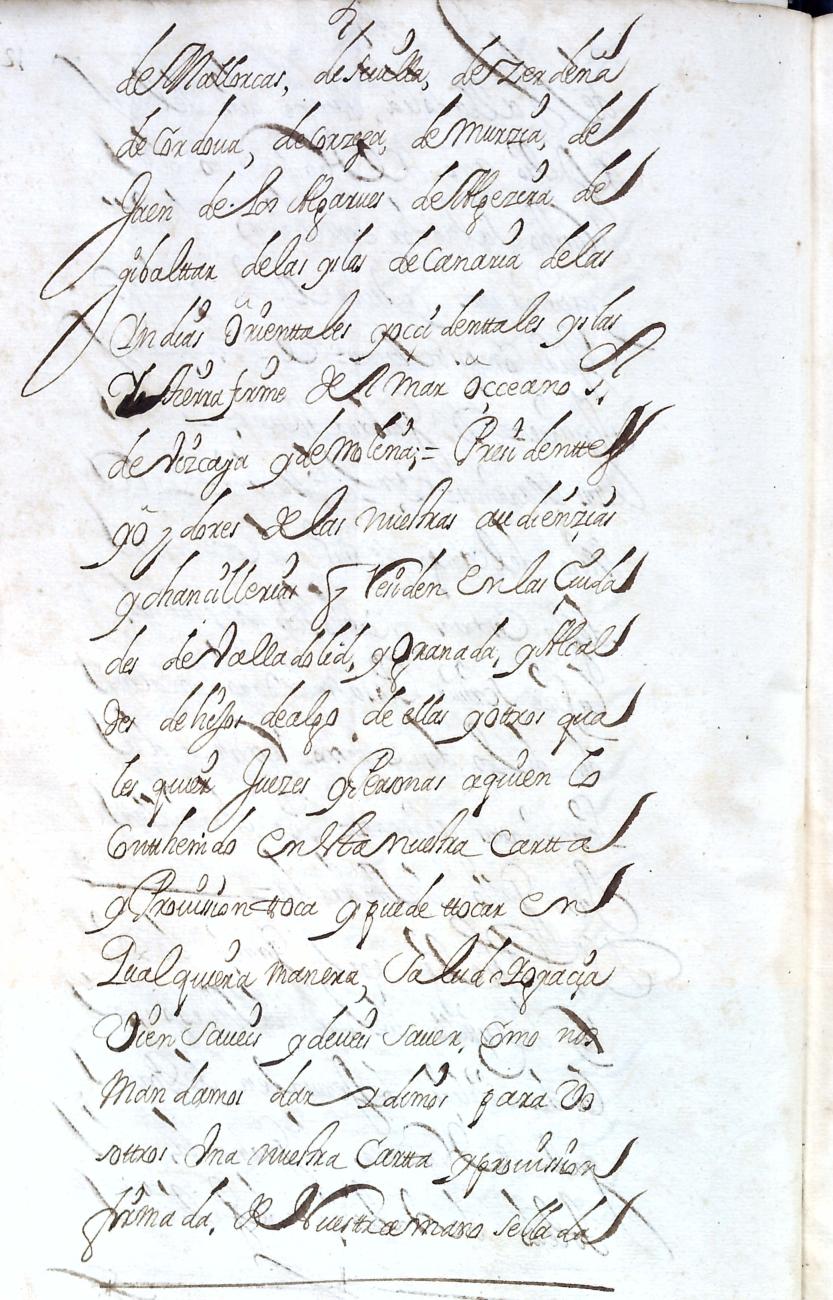 de Mallorcas, de seuilla, de Zerdeña
de Cordoua, de Corzega, de Murzia, de
Jaen de los Algarues de Algezira de
gibalttar de las yslas de Canaria de las
Yndias Orienttales y occidenttales yslas
tierra firme del mar occeano S.r
de Vizcaya y de Molina; = Presidenttes
y oydores de las nuestras audienzias
y chancillerias q Residen en las Ciuda
des de Valladolid, y Granada, y Alcal
des de hijos dealgo de ellas y ottros qua
les quier Juezes y Personas a quien lo
Conthenido en esta nuestra Cartta
y Prouission ttoca y puede ttocar en
Qualquiera manera, Salud y gracia
Vien saueis y deueis sauer, Como nos
Mandamos dar y dimos para Vo
sottros Vna nuestra Cartta y prouission
firmada, de Nuestra mano sellada